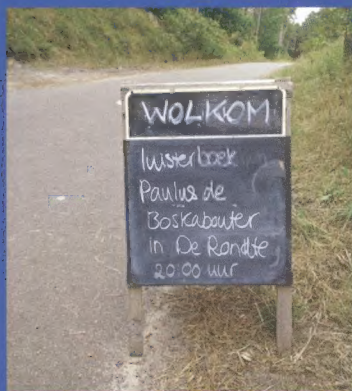 WOLKOM
luisterboek
Paulus de
Boskabouter
in De Rondte
20:00 uur